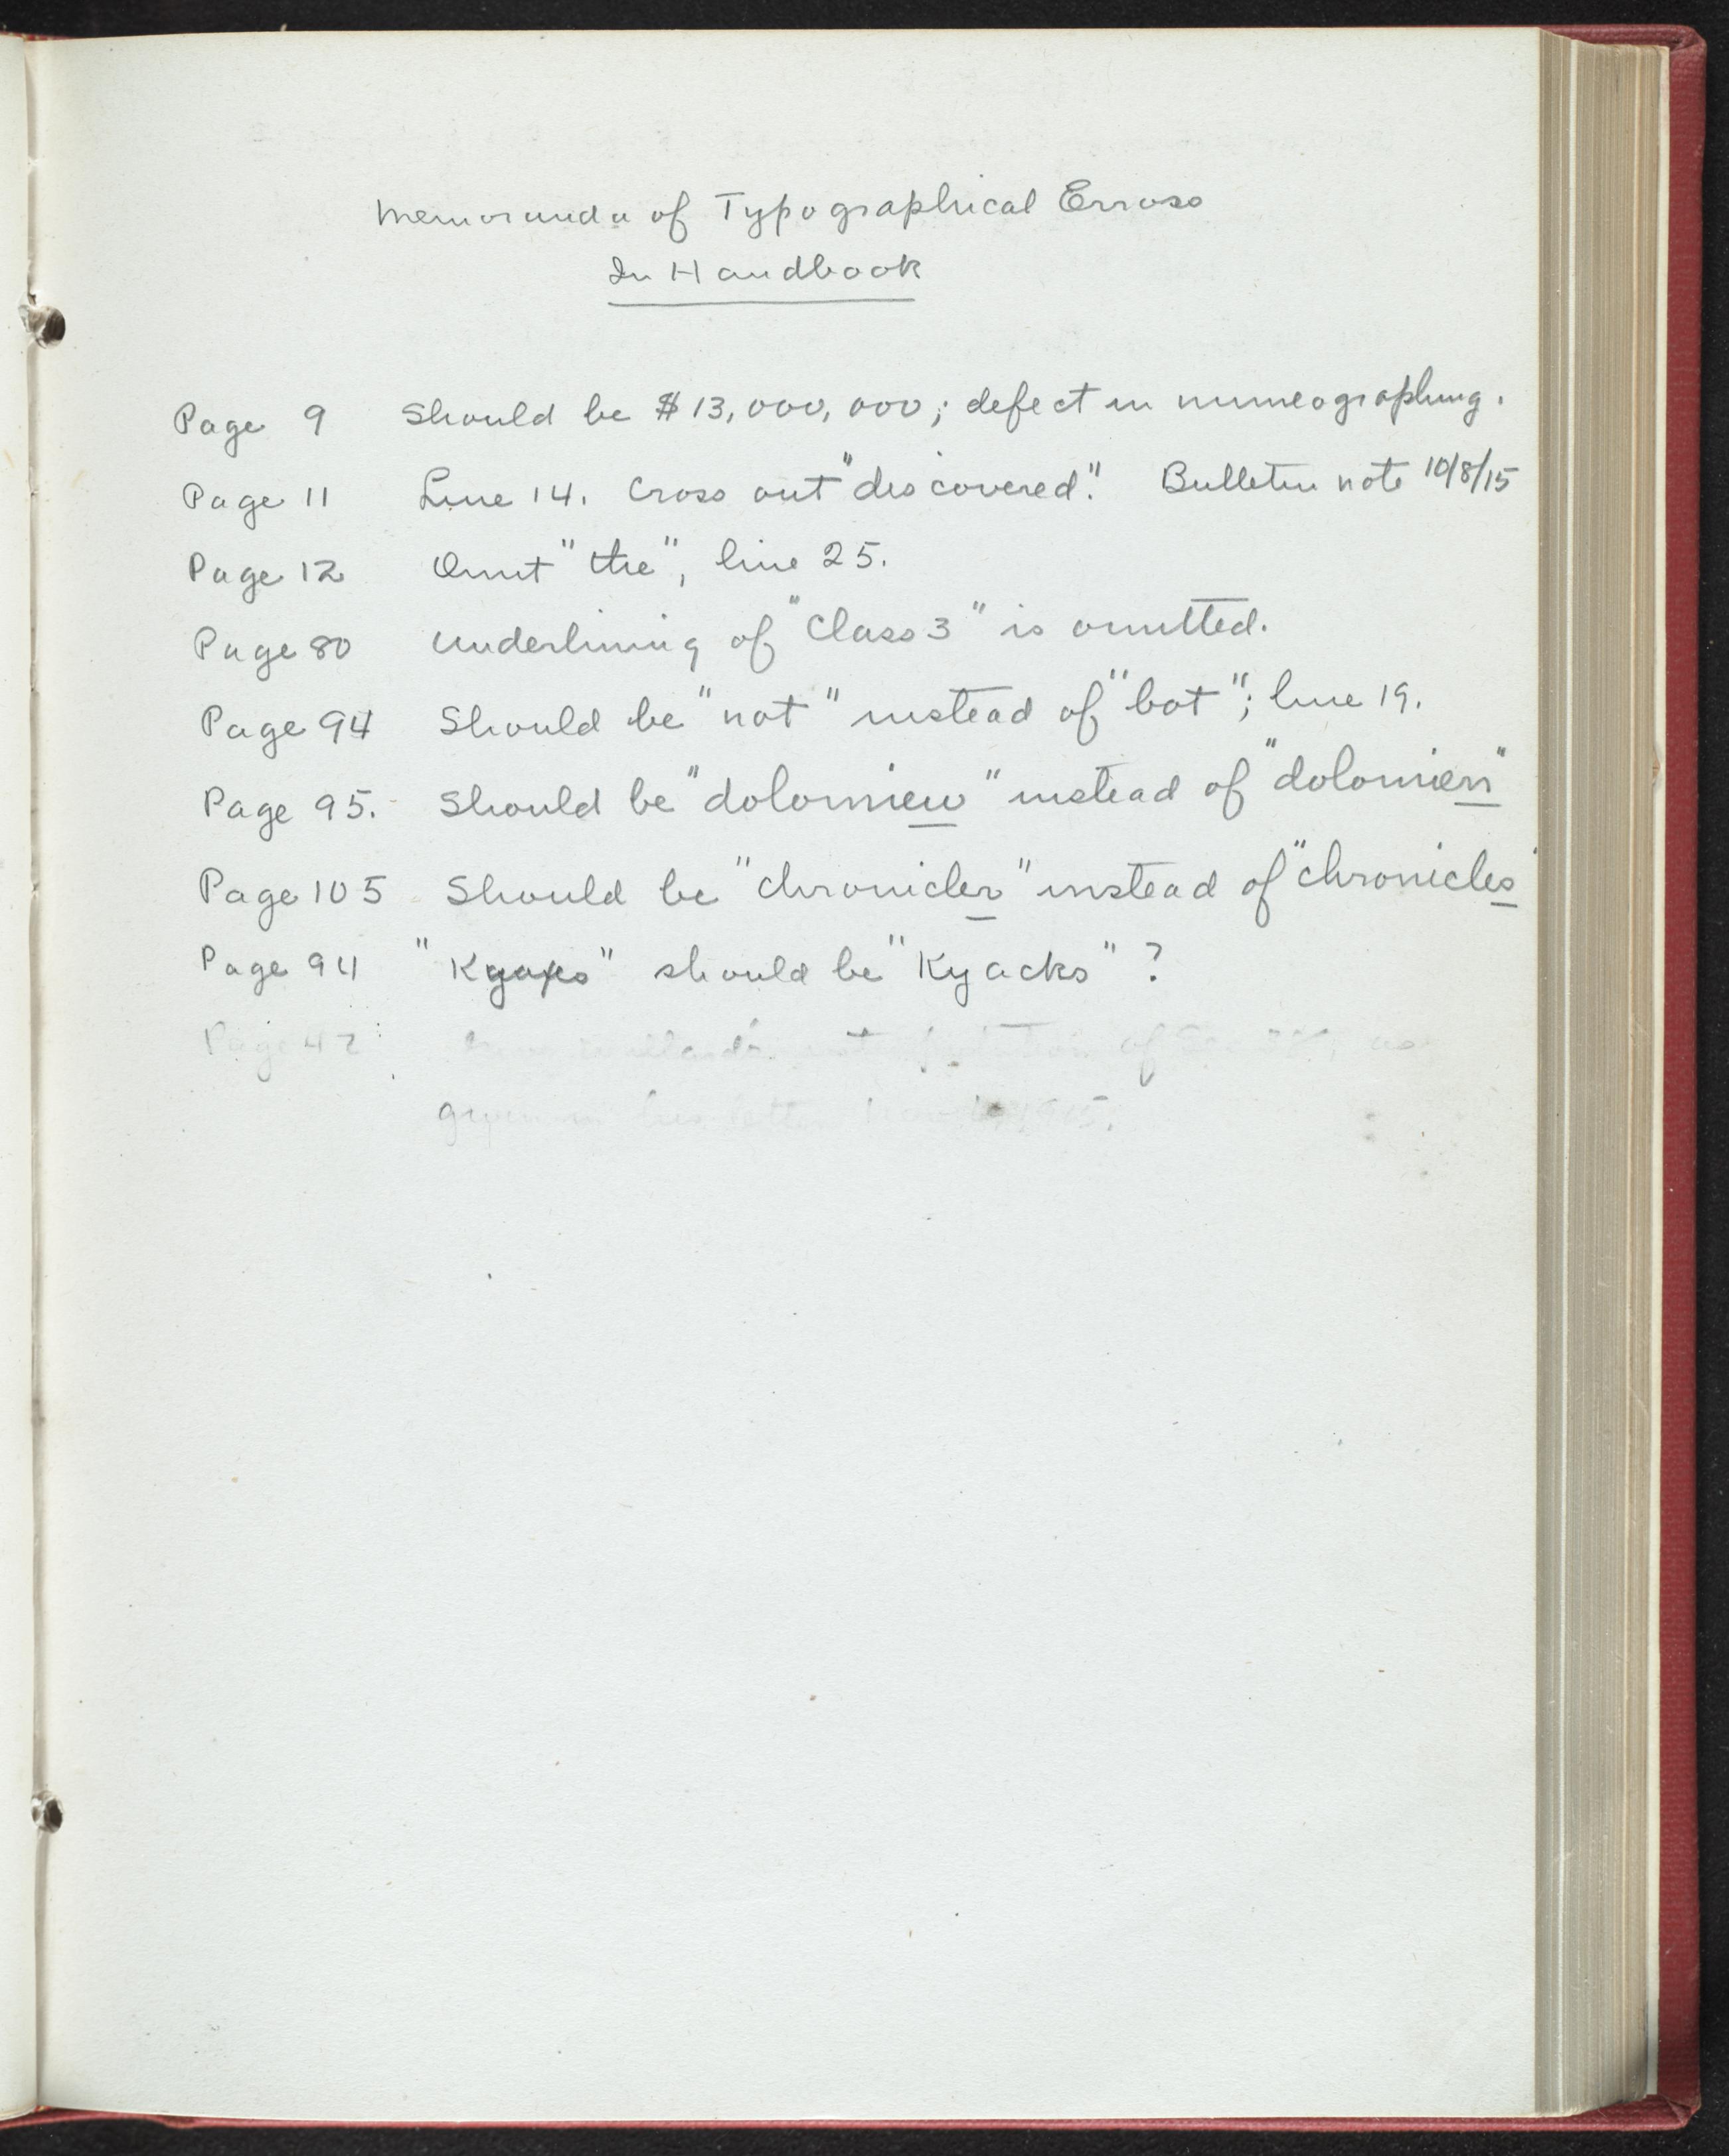 Memoranda of Typographical Errors
In Handbook
Page 9 Should be $13,000,000; defect in mimeographing.
Page 11 Line 14. Cross out "discovered". Bulletin note 10/8/15
Page 12 Omit "the", line 25.
Page 80 underlining of "Class 3" is omitted.
Page 94 Should be "not" instead of "bot"; line 19.
Page 95. Should be "dolomieu" instead of "dolomien"
Page 105 Should be "chronicler" instead of "chronicles"
Page 94 " " should be "Kyacks"?
Page 42 of as
given in his letter 1915.